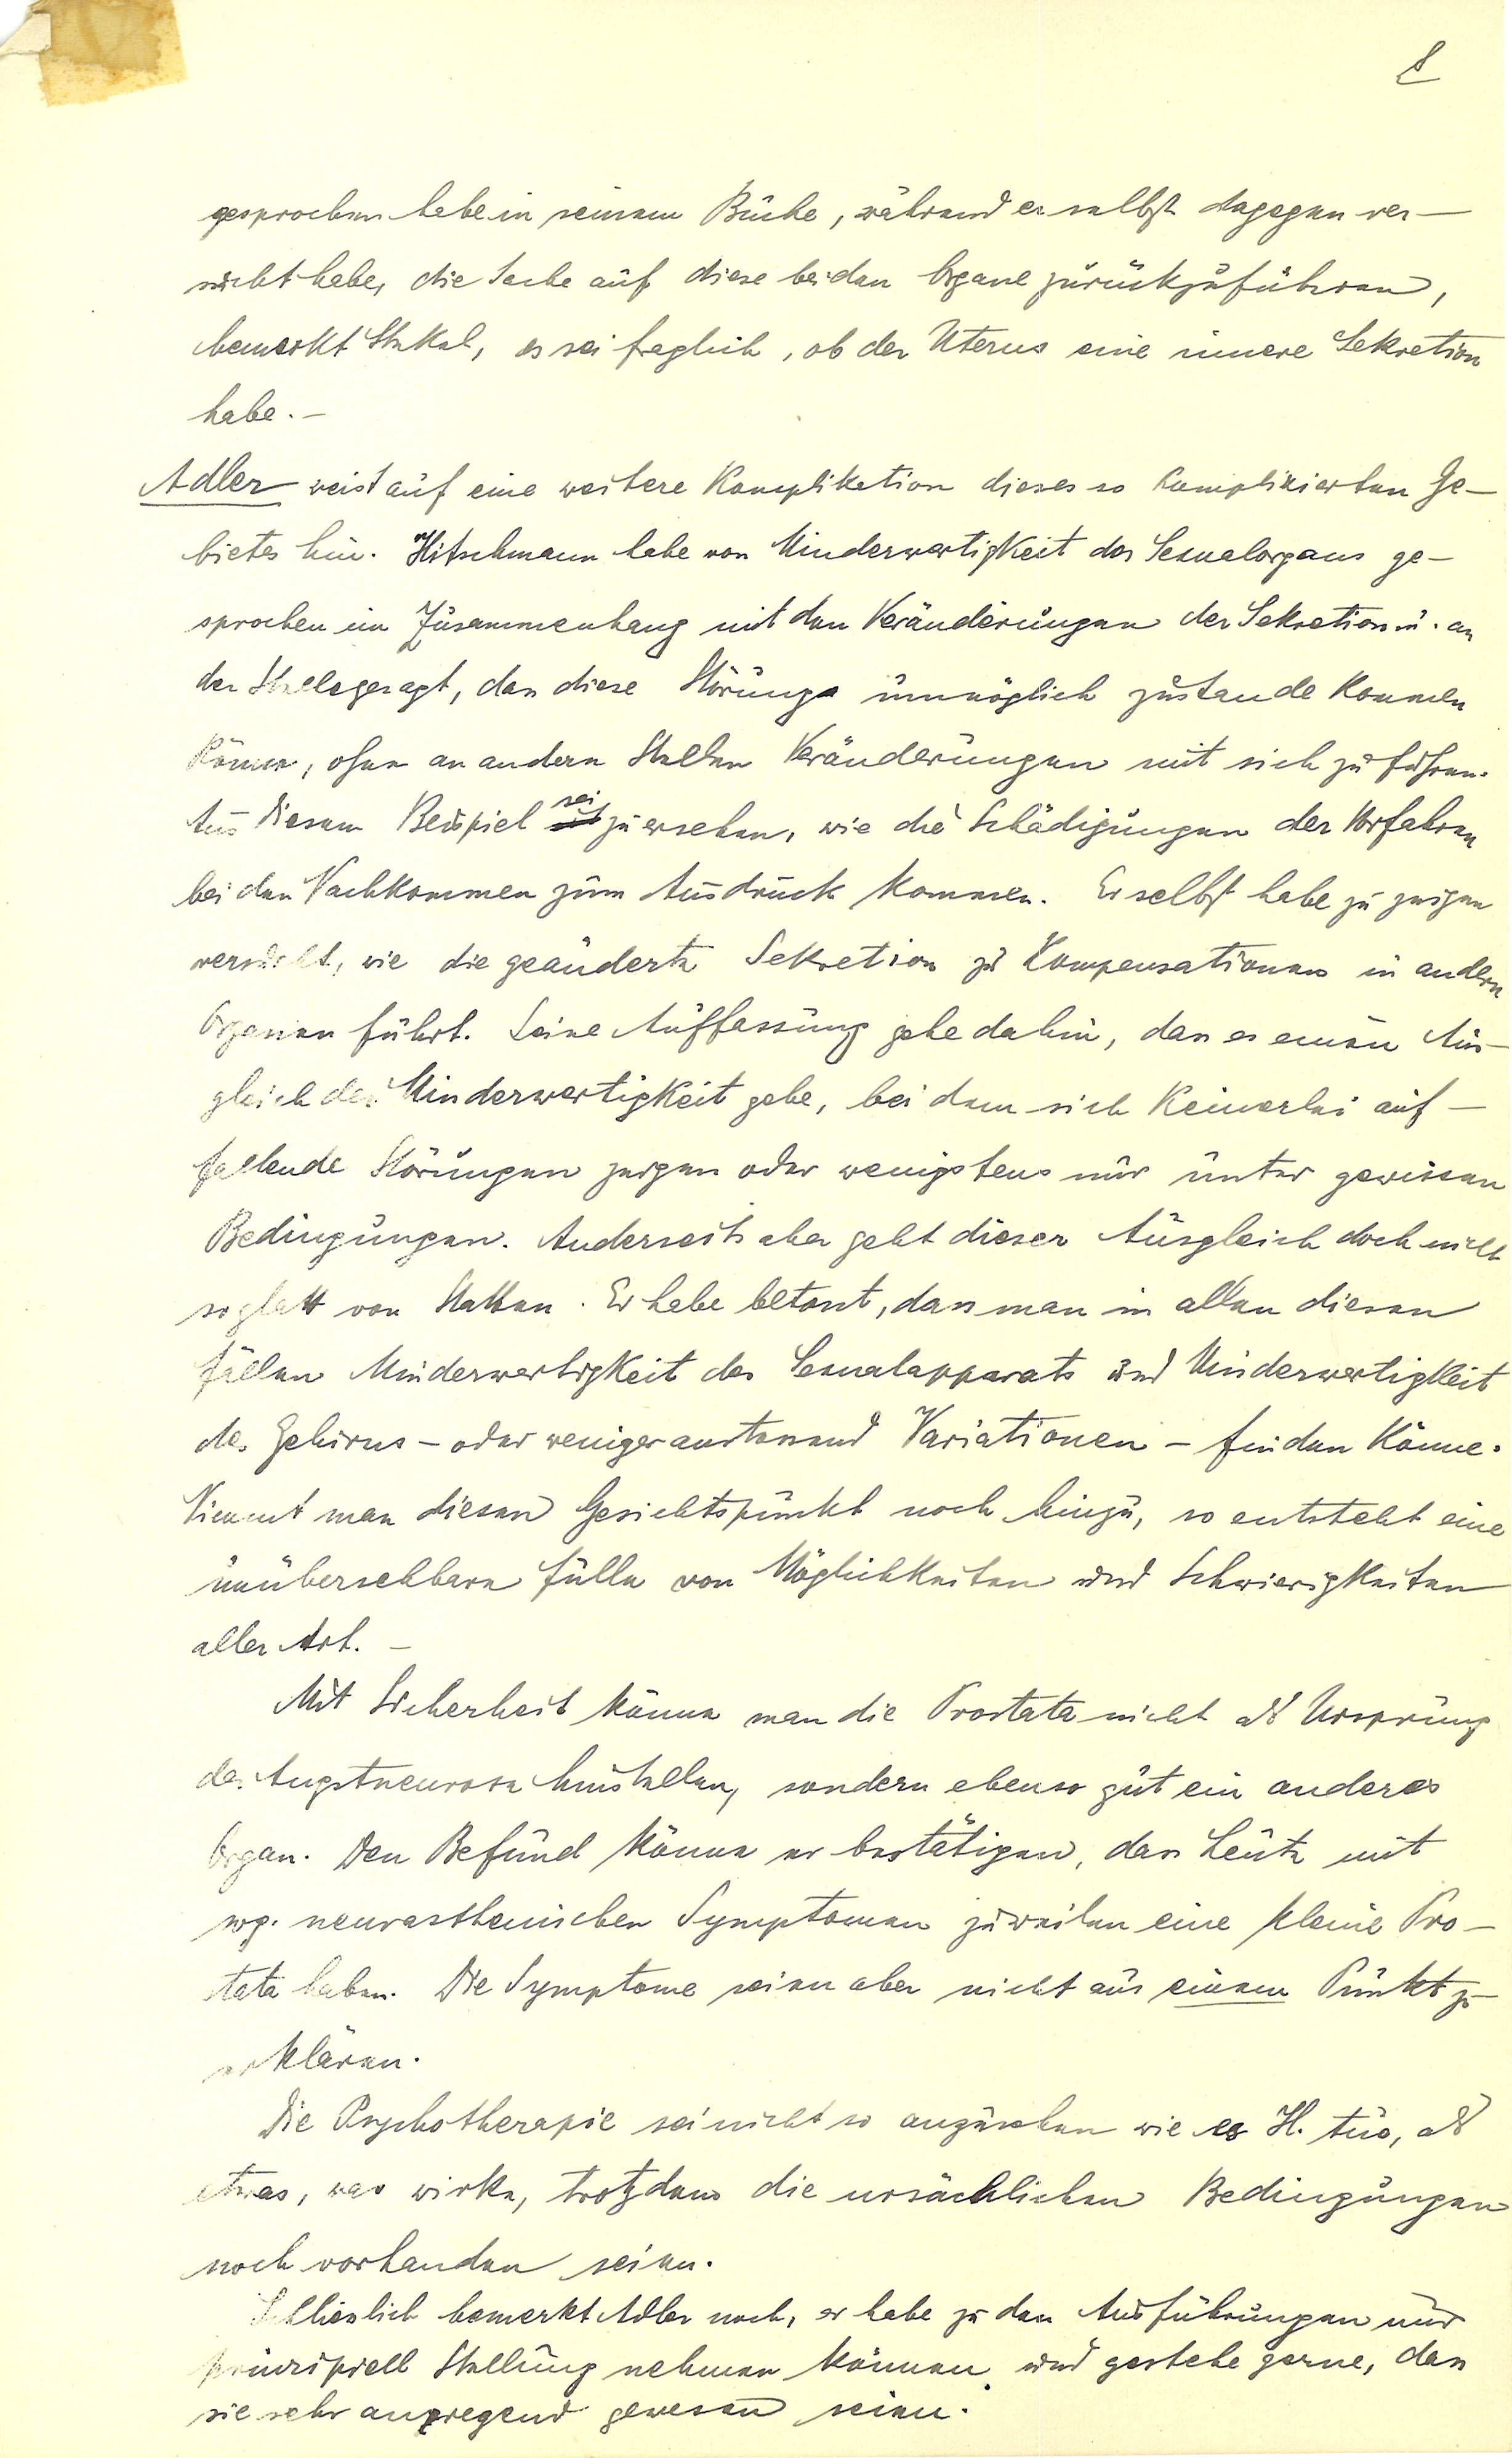 8
gesprochen habe in seinem Buche, während er selbst dagegen ver-
sucht habe, die Sache auf diese beiden Organe zurückzuführen,
bemerkt Stekel, es sei fraglich, ob der Uterus eine innere Sekretion
habe. -
Adler weist auf eine weitere Komplikation dieses so komplizierten Ge-
bietes hin. Hitschmann habe von Minderwertigkeit des Sexualorgans ge-
sprochen im Zusammenhang mit den Veränderungen der Sekretion u. an
der Stelle gesagt, das diese Störung unmöglich zustande kommen
könne, ohne an andern Stellen Veränderungen mit sich zu führen.
Aus diesem Beispiel sei zu ersehen, wie die Schädigungen der Vorfahren
bei den Nachkommen zum Ausdruck kommen. Er selbst habe zu zeigen
versucht, wie die geänderte Sekretion zu Kompensationen in andern
Organen führt. Seine Auffassung gehe dahin, das es einen Aus-
gleich der Minderwertigkeit gebe, bei dem sich keinerlei auf-
fallende Störungen zeigen oder wenigstens nur unter gewissen
Bedingungen. Anderseits aber geht dieser Ausgleich doch nicht
so glatt von Statten. Er habe betont, das man in allen diesen
Fällen Minderwertigkeit des Sexualapparats und Minderwertigkeit
des Gehirns - oder weniger anstossend Variationen - finden könne.
Nimmt man diesen Gesichtspunkt noch hinzu, so entsteht eine
unübersehbare Fülle von Möglichkeiten und Schwierigkeiten
aller Art. -
Mit Sicherheit könne man die Prostata nicht als Ursprung
der Angstneurose hinstellen, sondern ebenso gut ein anderes
Organ. Den Befund könne er bestätigen, das Leute mit
sog. neurasthenischen Symptomen zuweilen eine kleine Pro-
stata haben. Die Symptome seien aber nicht aus einem Punkt zu
erklären.
Die Psychotherapie sei nicht so anzusehen wie es H. tue, als
etwas, was wirke, trotzdem die ursächlichen Bedingungen
noch vorhanden seien.
Schlieslich bemerkt Adler noch, er habe zu den Ausführungen nur
prinzipiell Stellung nehmen können und gestehe gerne, das
sie sehr anregend gewesen seien.